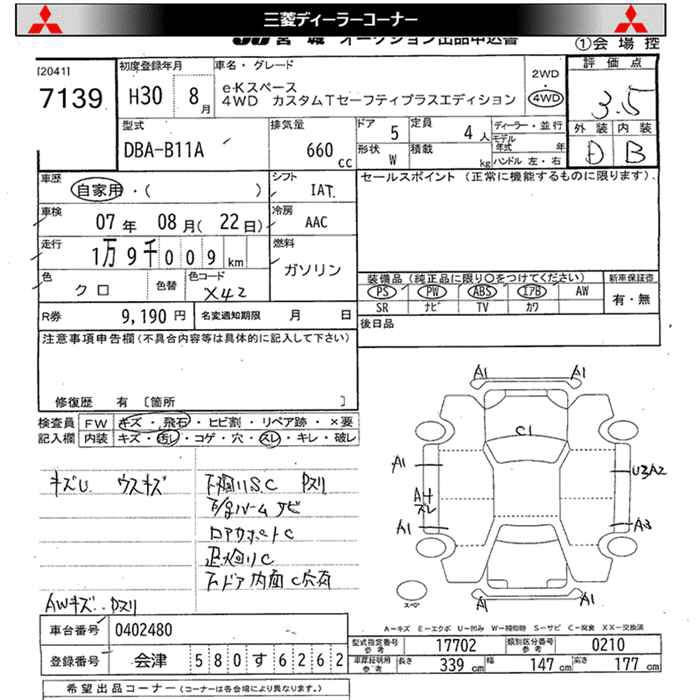 三菱ディーラーコーナー
宮城 オークション出品申込書
①会場控
[2041]
7139
初度登録年月
H30 8月
車名・グレード
e-Kスペース
4WD カスタムTセーフティプラスエディション
2WD
4WD
評価点
3.5
外装 内装
D B
型式
DBA-B11A
排気量
660 cc
ドア 5
定員 4人
形状 W
積載 kg
ディーラー・並行
モデル年式 年
ハンドル 左・右
車歴
自家用・( )
シフト
IAT
セールスポイント (正常に機能するものに限ります)
車検
07年 08月(22日)
冷房
AAC
走行
1万9千009 km
燃料
ガソリン
色
クロ
色替
色コード
X42
装備品 (純正品に限り○をつけてください)
新車保証書
PS PW ABS エアB AW
有・無
SR ナビ TV カワ
R券 9,190円
名変通知期限 月 日
後日品
注意事項申告欄(不具合内容等は具体的に記入して下さい)
修復歴 有 [箇所 ]
検査員
記入欄
FW キズ・飛石・ヒビ割・リペア跡・×要
内装 キズ・汚し・コゲ・穴・スレ・キレ・破レ
キズU ウスキズ
下廻りS.C
サビ
C
下ドア内面C穴有
AWキズ
A1 A1
C1
A1
U3A2
A4
スレ
A1
A3
A1 A1
スペア
A-キズ E-エクボ U-凹み W-補修跡 S-サビ C-腐食 XX-交換済
車台番号 0402480
登録番号 会津 580す6262
型式指定番号 参考 17702
類別区分番号 参考 0210
車庫証明用 参考 長さ 339cm 幅 147cm 高さ 177cm
希望出品コーナー (コーナーは各会場により異なります。)